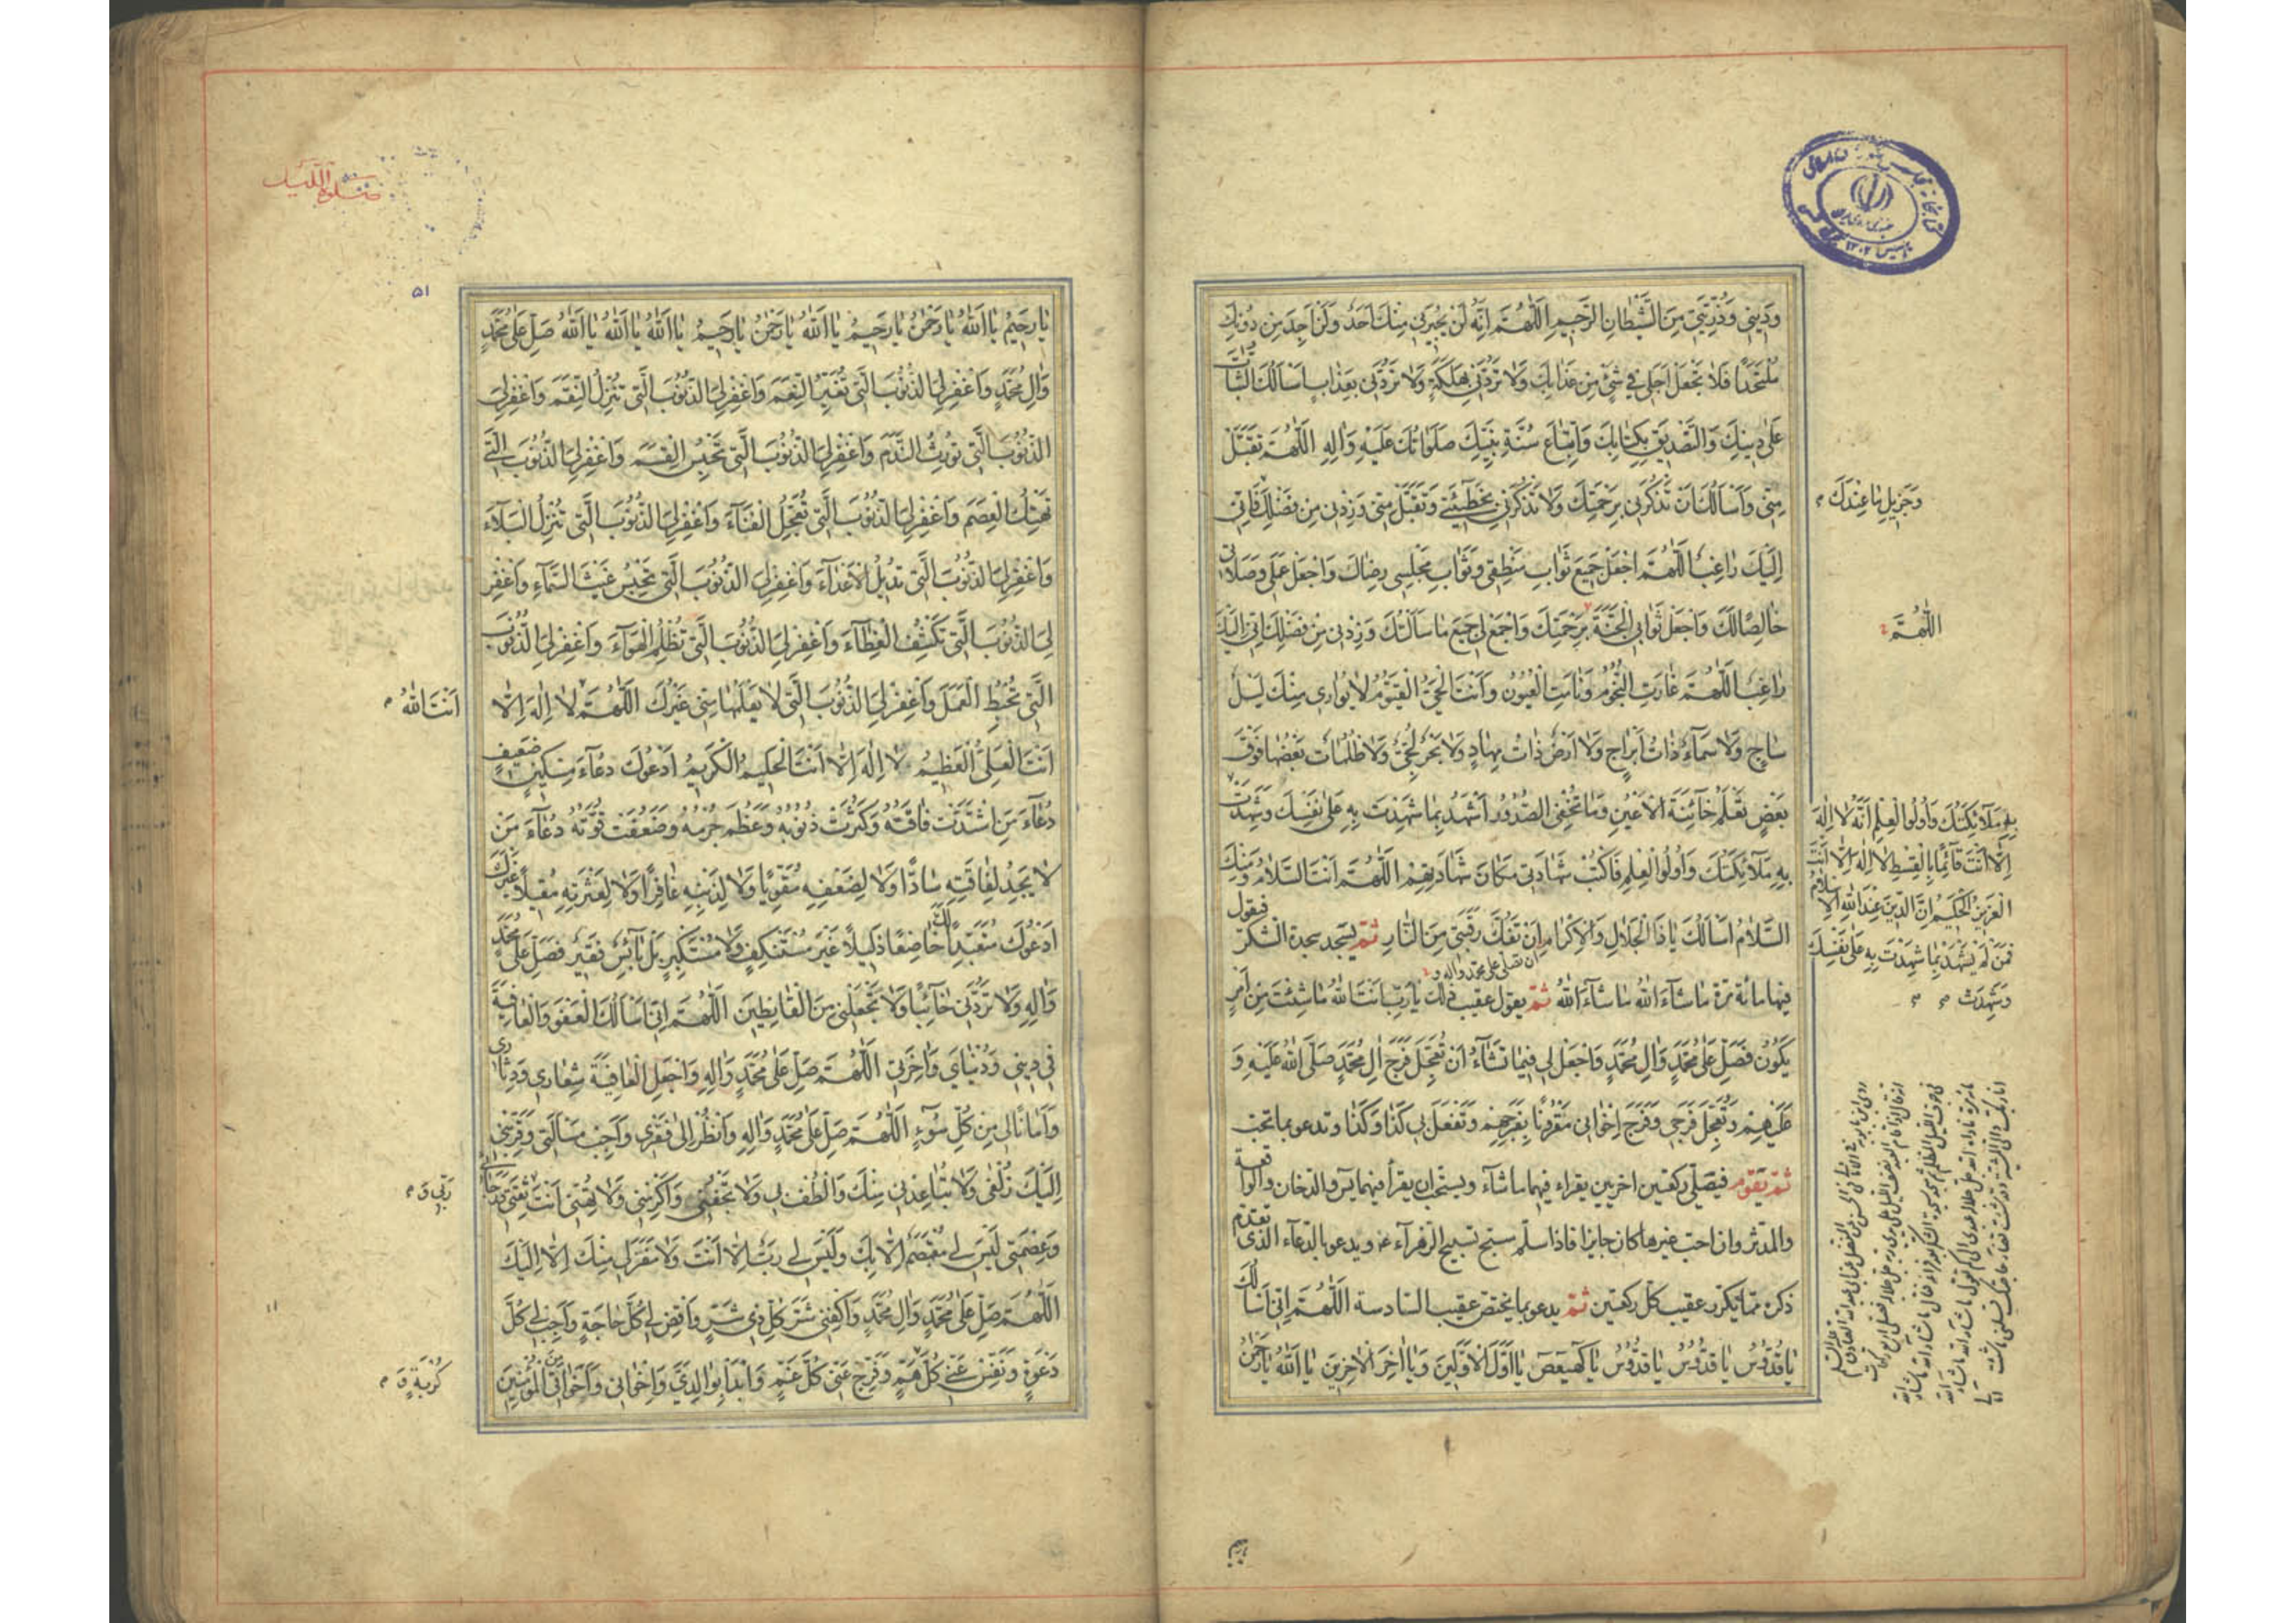 وَدُنْيَايَ وَذُرِّيَّتِي مِنَ الشَّيْطَانِ الرَّجِيمِ اَللّٰهُمَّ اِنَّهُ لَنْ يُجِيرَنِي مِنْكَ اَحَدٌ وَلَنْ اَجِدَ مِنْ دُونِكَ
مُلْتَحَدًا فَلَا تَجْعَلْ اَجَلِي فِي شَيْءٍ مِنْ عَذَابِكَ وَلَا تَرُدَّنِي بِهَلَكَةٍ وَلَا تَرُدَّنِي بِعَذَابٍ اَسْاَلُكَ الثَّبَاتَ
عَلٰى دِينِكَ وَالتَّصْدِيقَ بِكِتَابِكَ وَاتِّبَاعَ سُنَّةِ نَبِيِّكَ صَلَوَاتُكَ عَلَيْهِ وَاٰلِهِ اَللّٰهُمَّ تَقَبَّلْ
مِنِّي وَاَسْاَلُكَ اَنْ تَذْكُرَنِي بِرَحْمَتِكَ وَلَا تَذْكُرَنِي بِخَطِيئَتِي وَتَقَبَّلْ مِنِّي وَزِدْنِي مِنْ فَضْلِكَ فَاِنِّي
وَجَزِيلِ مَا عِنْدَكَ
اِلَيْكَ رَاغِبٌ اَللّٰهُمَّ اجْعَلْ جَمِيعَ ثَوَابِ مَنْطِقِي وَثَوَابِ مَجْلِسِي رِضَاكَ وَاجْعَلْ عَمَلِي وَصَلَاتِي
خَالِصًا لَكَ وَاجْعَلْ ثَوَابِيَ الْجَنَّةَ بِرَحْمَتِكَ وَاجْمَعْ لِي جَمِيعَ مَا سَاَلْتُكَ وَزِدْنِي مِنْ فَضْلِكَ اِنِّي اِلَيْكَ
اَللّٰهُمَّ
رَاغِبٌ اَللّٰهُمَّ غَارَتِ النُّجُومُ وَنَامَتِ الْعُيُونُ وَاَنْتَ الْحَيُّ الْقَيُّومُ لَا يُوَارِي مِنْكَ لَيْلٌ
سَاجٍ وَلَا سَمَاءٌ ذَاتُ اَبْرَاجٍ وَلَا اَرْضٌ ذَاتُ مِهَادٍ وَلَا بَحْرٌ لُجِّيٌّ وَلَا ظُلُمَاتٌ بَعْضُهَا فَوْقَ
بَعْضٍ تَعْلَمُ خَائِنَةَ الْاَعْيُنِ وَمَا تُخْفِي الصُّدُورُ اَشْهَدُ بِمَا شَهِدْتَ بِهِ عَلٰى نَفْسِكَ وَشَهِدَتْ
بِهِ مَلَائِكَتُكَ وَاُولُوا الْعِلْمِ فَاكْتُبْ شَهَادَتِي مَكَانَ شَهَادَتِهِمْ اَللّٰهُمَّ اَنْتَ السَّلَامُ وَمِنْكَ
بِهِ مَلَائِكَتُكَ وَاُولُوا الْعِلْمِ اَنَّهُ لَا اِلٰهَ
اِلَّا اَنْتَ قَائِمًا بِالْقِسْطِ لَا اِلٰهَ اِلَّا اَنْتَ
الْعَزِيزُ الْحَكِيمُ اِنَّ الدِّينَ عِنْدَ اللّٰهِ الْاِسْلَامُ
فَمَنْ لَمْ يَشْهَدْ بِمَا شَهِدْتَ بِهِ عَلٰى نَفْسِكَ
وَشَهِدَتْ
السَّلَامُ اَسْاَلُكَ يَا ذَا الْجَلَالِ وَالْاِكْرَامِ اَنْ تَفُكَّ رَقَبَتِي مِنَ النَّارِ ثُمَّ يسجد سجدة الشكر فيقول
ان تصلى على محمد واله و
فيها مائة مرة مَا شَاءَ اللّٰهُ مَا شَاءَ اللّٰهُ ثُمَّ يقول عقيب ذلك يَا رَبِّ اَنْتَ اللّٰهُ مَا شِئْتَ مِنْ اَمْرٍ
يَكُونُ فَصَلِّ عَلٰى مُحَمَّدٍ وَاٰلِ مُحَمَّدٍ وَاجْعَلْ لِي فِيمَا تَشَاءُ اَنْ تُعَجِّلَ فَرَجَ اٰلِ مُحَمَّدٍ صَلَّى اللّٰهُ عَلَيْهِ وَ
عَلَيْهِمْ وَتُعَجِّلَ فَرَجِي وَفَرَجَ اِخْوَانِي مَقْرُونًا بِفَرَجِهِمْ وَتَفْعَلَ بِي كَذَا وَكَذَا وتدعو بما تحب
ثُمَّ يَقُوم فيصلّى ركعتين اخريين يقراء فيهما ما شاء ويستحب ان يقرأ فيهما يس والدخان والواقعة
والمدثر وان احب غيرها كان جايزا فاذا سلم سبح تسبيح الزهراء ع ويدعو بالدعاء الذى تقدم
ذكره مما يكرر عقيب كل ركعتين ثُمَّ يدعو بما يختص عقيب السادسة اَللّٰهُمَّ اِنِّي اَسْاَلُكَ
يَا قُدُّوسُ يَا قُدُّوسُ يَا قُدُّوسُ يَا كٓهٰيٰعٓصٓ يَا اَوَّلَ الْاَوَّلِينَ وَيَا اٰخِرَ الْاٰخِرِينَ يَا اَللّٰهُ يَا رَحْمٰنُ
صلوة الليل
۵۱
يَا رَحِيمُ يَا اَللّٰهُ يَا رَحْمٰنُ يَا رَحِيمُ يَا اَللّٰهُ يَا رَحْمٰنُ يَا رَحِيمُ يَا اَللّٰهُ يَا اَللّٰهُ يَا اَللّٰهُ صَلِّ عَلٰى مُحَمَّدٍ
وَاٰلِ مُحَمَّدٍ وَاغْفِرْ لِيَ الذُّنُوبَ الَّتِي تُغَيِّرُ النِّعَمَ وَاغْفِرْ لِيَ الذُّنُوبَ الَّتِي تُنْزِلُ النِّقَمَ وَاغْفِرْ لِيَ
الذُّنُوبَ الَّتِي تُورِثُ النَّدَمَ وَاغْفِرْ لِيَ الذُّنُوبَ الَّتِي تَحْبِسُ الْقِسَمَ وَاغْفِرْ لِيَ الذُّنُوبَ الَّتِي
تَهْتِكُ الْعِصَمَ وَاغْفِرْ لِيَ الذُّنُوبَ الَّتِي تُعَجِّلُ الْفَنَاءَ وَاغْفِرْ لِيَ الذُّنُوبَ الَّتِي تُنْزِلُ الْبَلَاءَ
وَاغْفِرْ لِيَ الذُّنُوبَ الَّتِي تُدِيلُ الْاَعْدَاءَ وَاغْفِرْ لِيَ الذُّنُوبَ الَّتِي تَحْبِسُ غَيْثَ السَّمَاءِ وَاغْفِرْ
لِيَ الذُّنُوبَ الَّتِي تَكْشِفُ الْغِطَاءَ وَاغْفِرْ لِيَ الذُّنُوبَ الَّتِي تُظْلِمُ الْهَوَاءَ وَاغْفِرْ لِيَ الذُّنُوبَ
الَّتِي تُحْبِطُ الْعَمَلَ وَاغْفِرْ لِيَ الذُّنُوبَ الَّتِي لَا يَعْلَمُهَا مِنِّي غَيْرُكَ اَللّٰهُمَّ لَا اِلٰهَ اِلَّا
اَنْتَ اللّٰهُ
اَنْتَ الْعَلِيُّ الْعَظِيمُ لَا اِلٰهَ اِلَّا اَنْتَ الْحَلِيمُ الْكَرِيمُ اَدْعُوكَ دُعَاءَ مِسْكِينٍ ضَعِيفٍ
دُعَاءَ مَنِ اشْتَدَّتْ فَاقَتُهُ وَكَثُرَتْ ذُنُوبُهُ وَعَظُمَ جُرْمُهُ وَضَعُفَتْ قُوَّتُهُ دُعَاءَ مَنْ
لَا يَجِدُ لِفَاقَتِهِ سَادًّا وَلَا لِضَعْفِهِ مُقَوِّيًا وَلَا لِذَنْبِهِ غَافِرًا وَلَا لِعَثْرَتِهِ مُقِيلًا غَيْرَكَ
اَدْعُوكَ مُتَعَبِّدًا لَكَ خَاضِعًا ذَلِيلًا غَيْرَ مُسْتَنْكِفٍ وَلَا مُسْتَكْبِرٍ بَلْ بَائِسٌ فَقِيرٌ فَصَلِّ عَلٰى مُحَمَّدٍ
وَاٰلِهِ وَلَا تَرُدَّنِي خَائِبًا وَلَا تَجْعَلْنِي مِنَ الْقَانِطِينَ اَللّٰهُمَّ اِنِّي اَسْاَلُكَ الْعَفْوَ وَالْعَافِيَةَ
فِي دِينِي وَدُنْيَايَ وَاٰخِرَتِي اَللّٰهُمَّ صَلِّ عَلٰى مُحَمَّدٍ وَاٰلِهِ وَاجْعَلِ الْعَافِيَةَ شِعَارِي وَدِثَارِي
وَاَمَانًا لِي مِنْ كُلِّ سُوءٍ اَللّٰهُمَّ صَلِّ عَلٰى مُحَمَّدٍ وَاٰلِهِ وَانْظُرْ اِلٰى فَقْرِي وَاَجِبْ مَسْاَلَتِي وَقَرِّبْنِي
اِلَيْكَ زُلْفٰى وَلَا تُبَاعِدْنِي مِنْكَ وَالْطُفْ بِي وَلَا تَجْفُنِي وَاَكْرِمْنِي وَلَا تُهِنِّي اَنْتَ ثِقَتِي وَرَجَائِي
رَبِّي وَ
وَعِصْمَتِي لَيْسَ لِي مُعْتَصَمٌ اِلَّا بِكَ وَلَيْسَ لِي رَبٌّ اِلَّا اَنْتَ وَلَا مَفَرَّ لِي مِنْكَ اِلَّا اِلَيْكَ
اَللّٰهُمَّ صَلِّ عَلٰى مُحَمَّدٍ وَاٰلِ مُحَمَّدٍ وَاكْفِنِي شَرَّ كُلِّ ذِي شَرٍّ وَاقْضِ لِي كُلَّ حَاجَةٍ وَاَجِبْ لِي كُلَّ
دَعْوَةٍ وَنَفِّسْ عَنِّي كُلَّ هَمٍّ وَفَرِّجْ عَنِّي كُلَّ غَمٍّ وَابْدَاْ بِوَالِدَيَّ وَاِخْوَانِي وَاَخَوَاتِي مِنَ الْمُؤْمِنِينَ
كُرْبَةٍ وَ